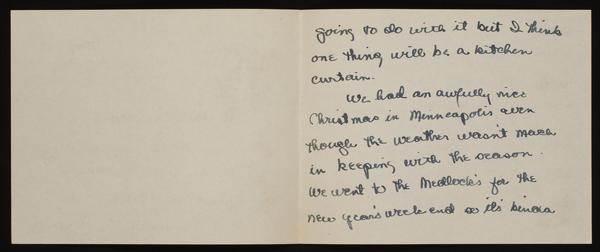 going to do with it but I think
one thing will be a kitchen
curtain.
We had an awfully nice
Christmas in Minneapolis even
though the weather wasn't much
in keeping with the season.
We went to the Medlock's for the
new year's week end so it's kinda